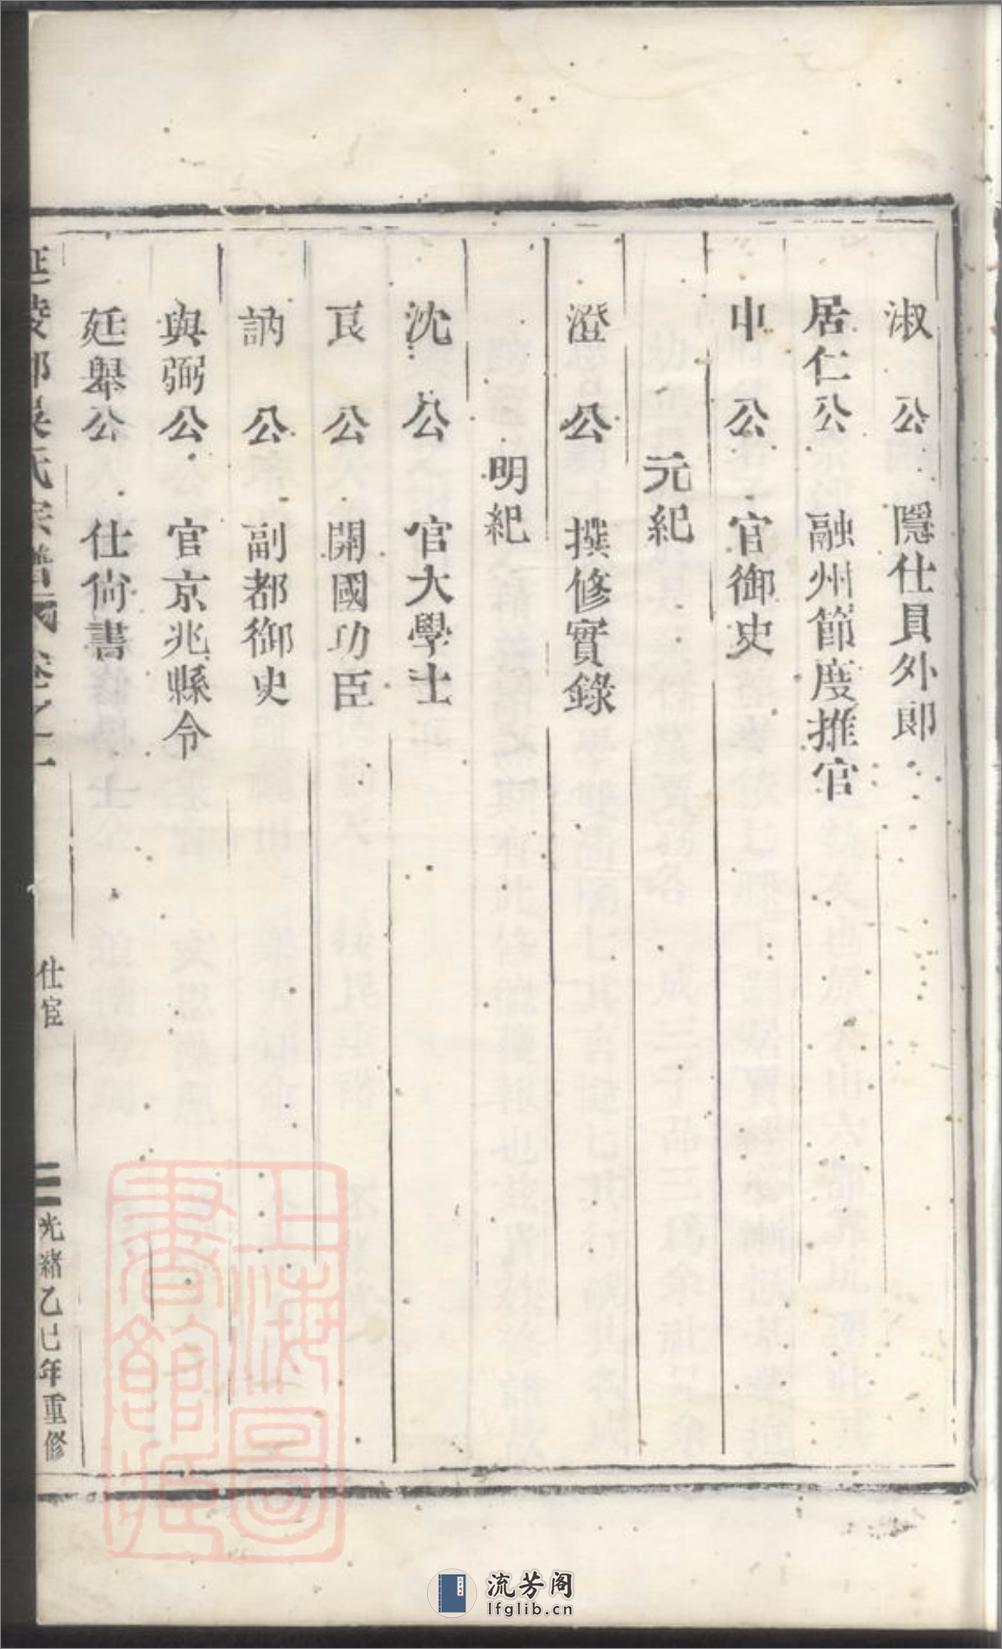 淑　公　隱仕員外郎
居仁公　融州節度推官
中　公　官御史
元紀
澄　公　撰修實錄
明紀
沈　公　官大學士
良　公　開國功臣
訥　公　副都御史
與弼公　官京兆縣令
廷舉公　仕尙書
延陵郡吳氏宗譜　卷之一
仕宦
二
光緒乙巳年重修
上海圖書館藏
流芳阁
lfglib.cn